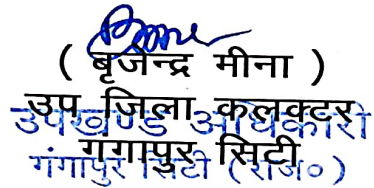 ( बृजेन्द्र मीना )
उप जिला कलक्टर
उपखण्ड अधिकारी
गंगापुर सिटी
गंगापुर सिटी (राज०)